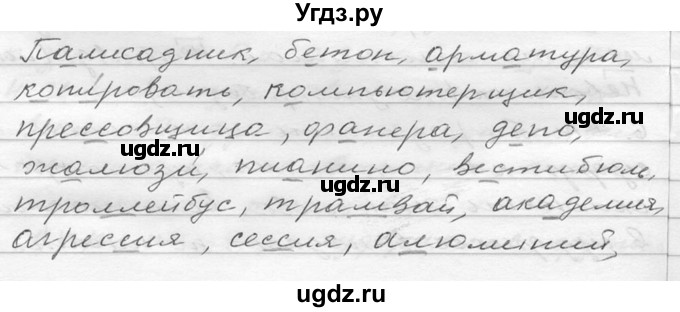 Угдз.ру
Палисадник, бетон, арматура,
копировать, компьютерщик,
прессовщица, фанера, депо,
жалюзи, пианино, вестибюль,
троллейбус, трамвай, академия,
агрессия, сессия, алюминий,
ugdz.ru
ugdz.ru
ugdz.ru
ugdz.ru
ugdz.ru